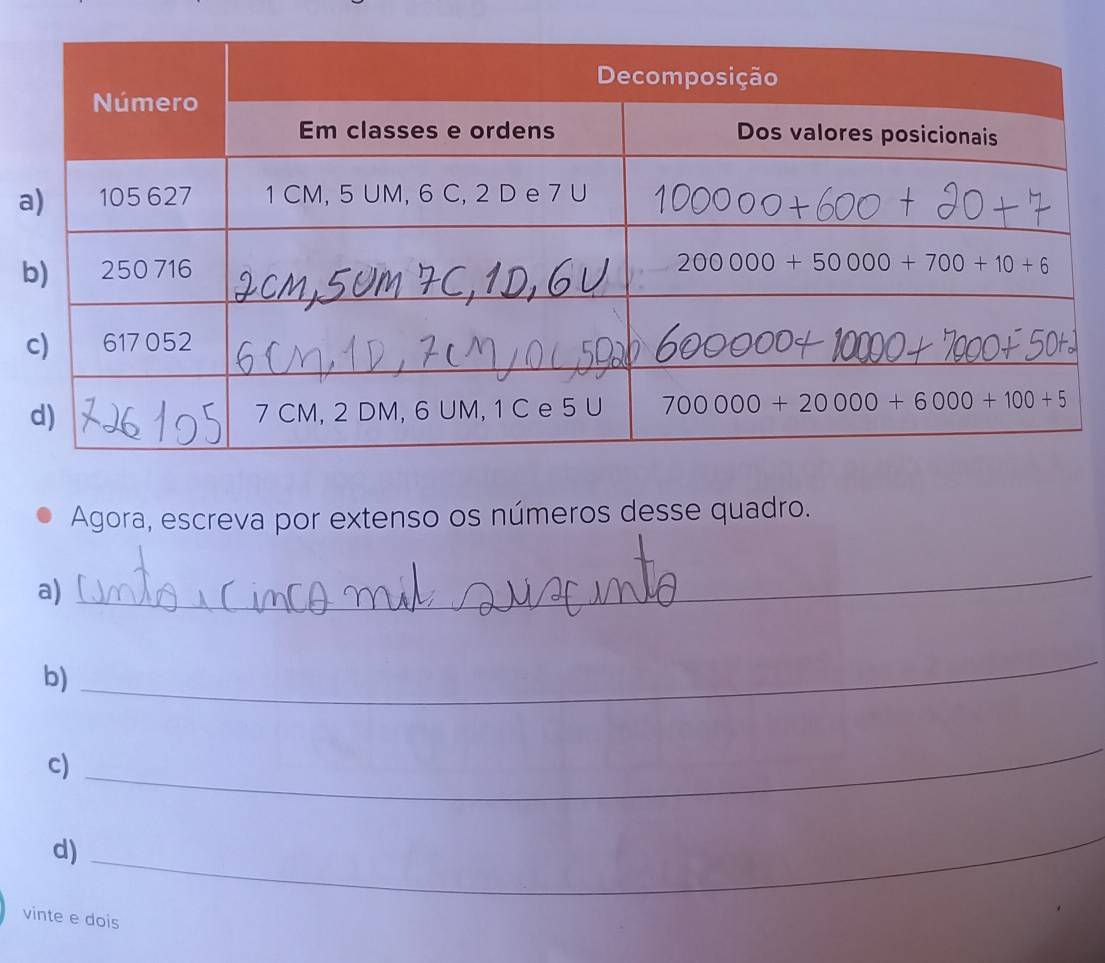 Decomposição
Número
Em classes e ordens Dos valores posicionais
a) 105 627 1 CM, 5 UM, 6 C, 2 D e 7 U 100000+600 + 20+7
b) 250 716 2CM,5UM 7C,1D,6U 200 000 + 50 000 + 700 + 10 + 6
c) 617 052 6CM,1D,7CM,0C, 600000+ 10000+ 7000+50+2
d) 726 105 7 CM, 2 DM, 6 UM, 1 C e 5 U 700 000 + 20 000 + 6 000 + 100 + 5
• Agora, escreva por extenso os números desse quadro.
a) cinco mil
b)
c)
d)
vinte e dois